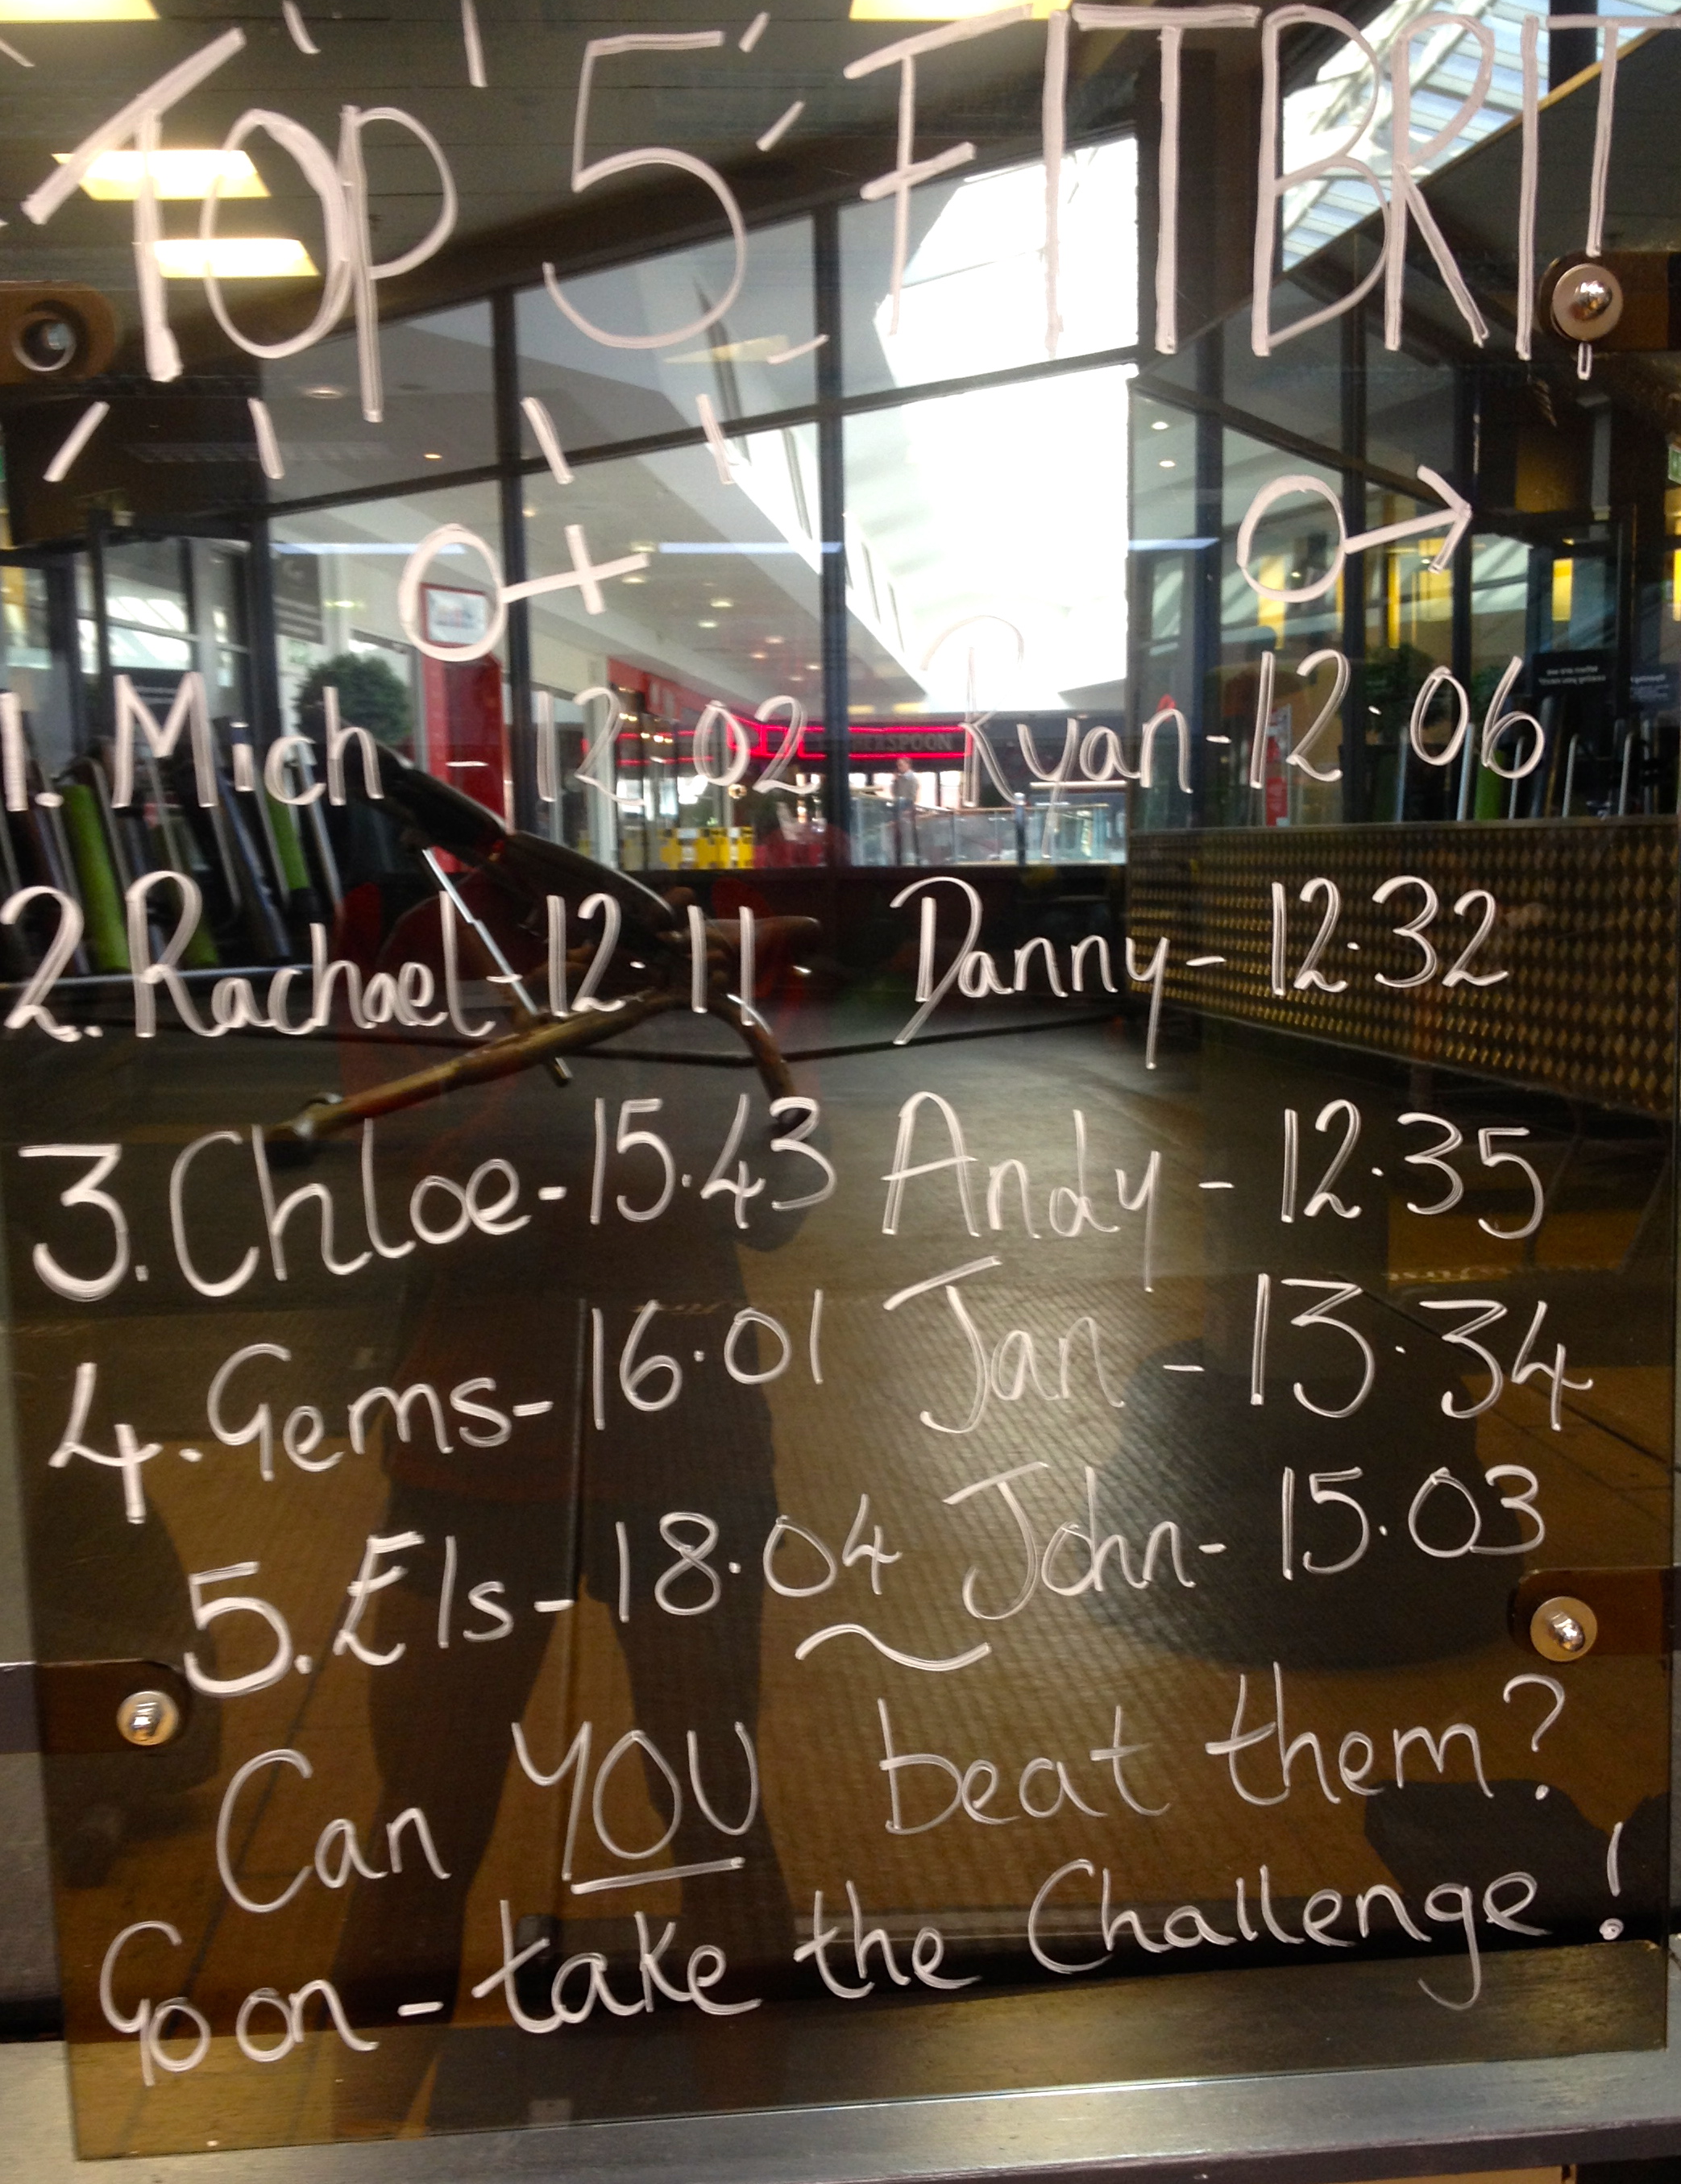 TOP 5 FITBRIT
1. Mich - 12.02 Ryan - 12.06
2. Rachael - 12.11 Danny - 12.32
3. Chloe - 15.43 Andy - 12.35
4. Gems - 16.01 Jan - 13.34
5. Els - 18.04 John - 15.03
Can YOU beat them?
Go on - take the Challenge!